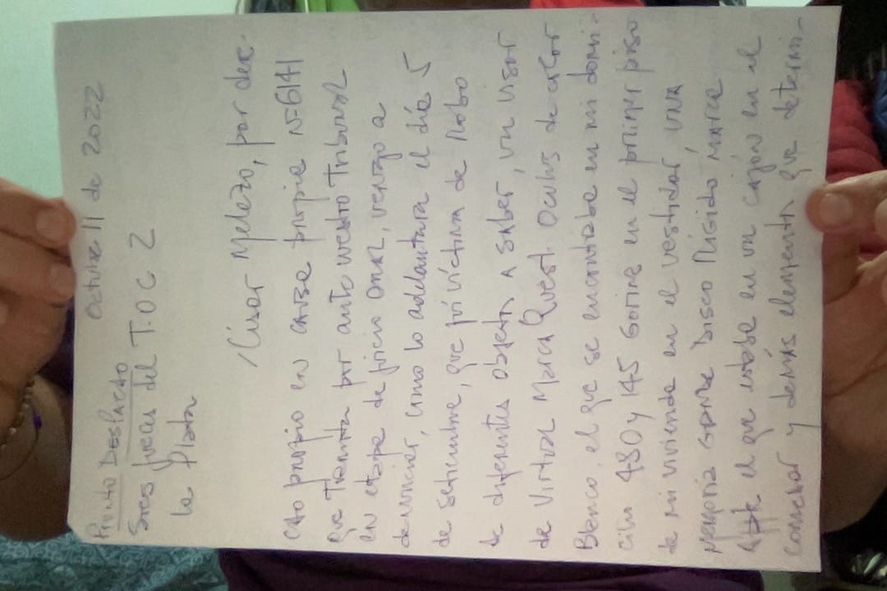 Octubre 11 de 2022
Pronto Despacho
Sres jueces del T.O.C 2
la Plata
César Melazo, por dere-
cho propio en causa propia N=6141
que tramita por ante vuestro Tribunal
en etapa de juicio oral, vengo a
denunciar, como lo adelantara el día 5
de setiembre, que fui víctima de Robo
de diferentes objetos a saber, un visor
de Virtual Marca Quest. Oculus de color
Blanco, el que se encontraba en mi domi-
cilio 480 y 145 Gorina en el primer piso
de mi vivienda en el vestidor, una
memoria Disco Rígido marca
el que estaba en un cajón en el
comedor y demás elementos que determi-